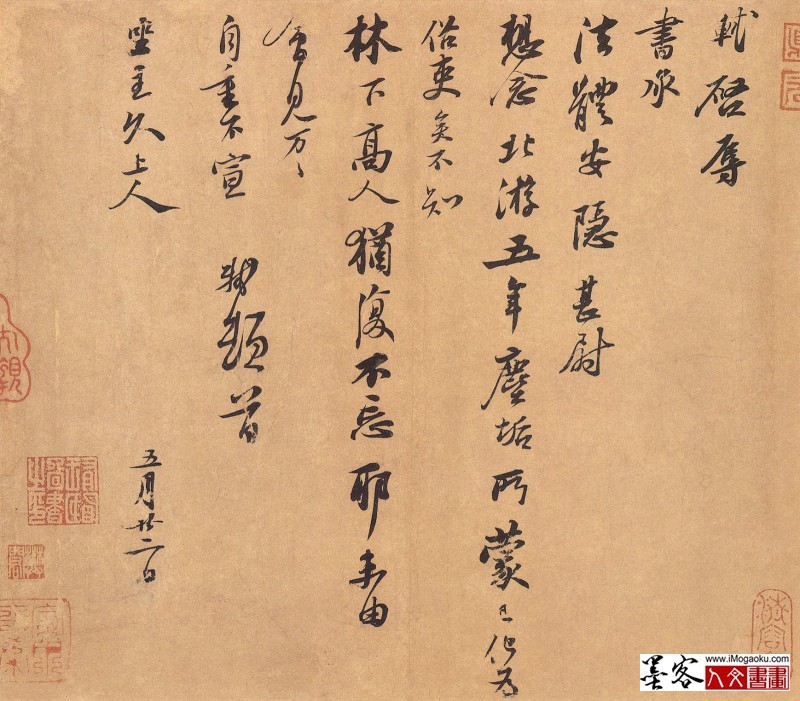 軾啓辱
書承
法體安隱甚尉
想念北游五年塵垢所蒙已化為
俗吏矣不知
林下高人猶復不忘耶未由
會見万〻
自重不宣 軾頓首
坐主久上人
五月廿二日
墨客
www.iMogaoku.com
人文書畫